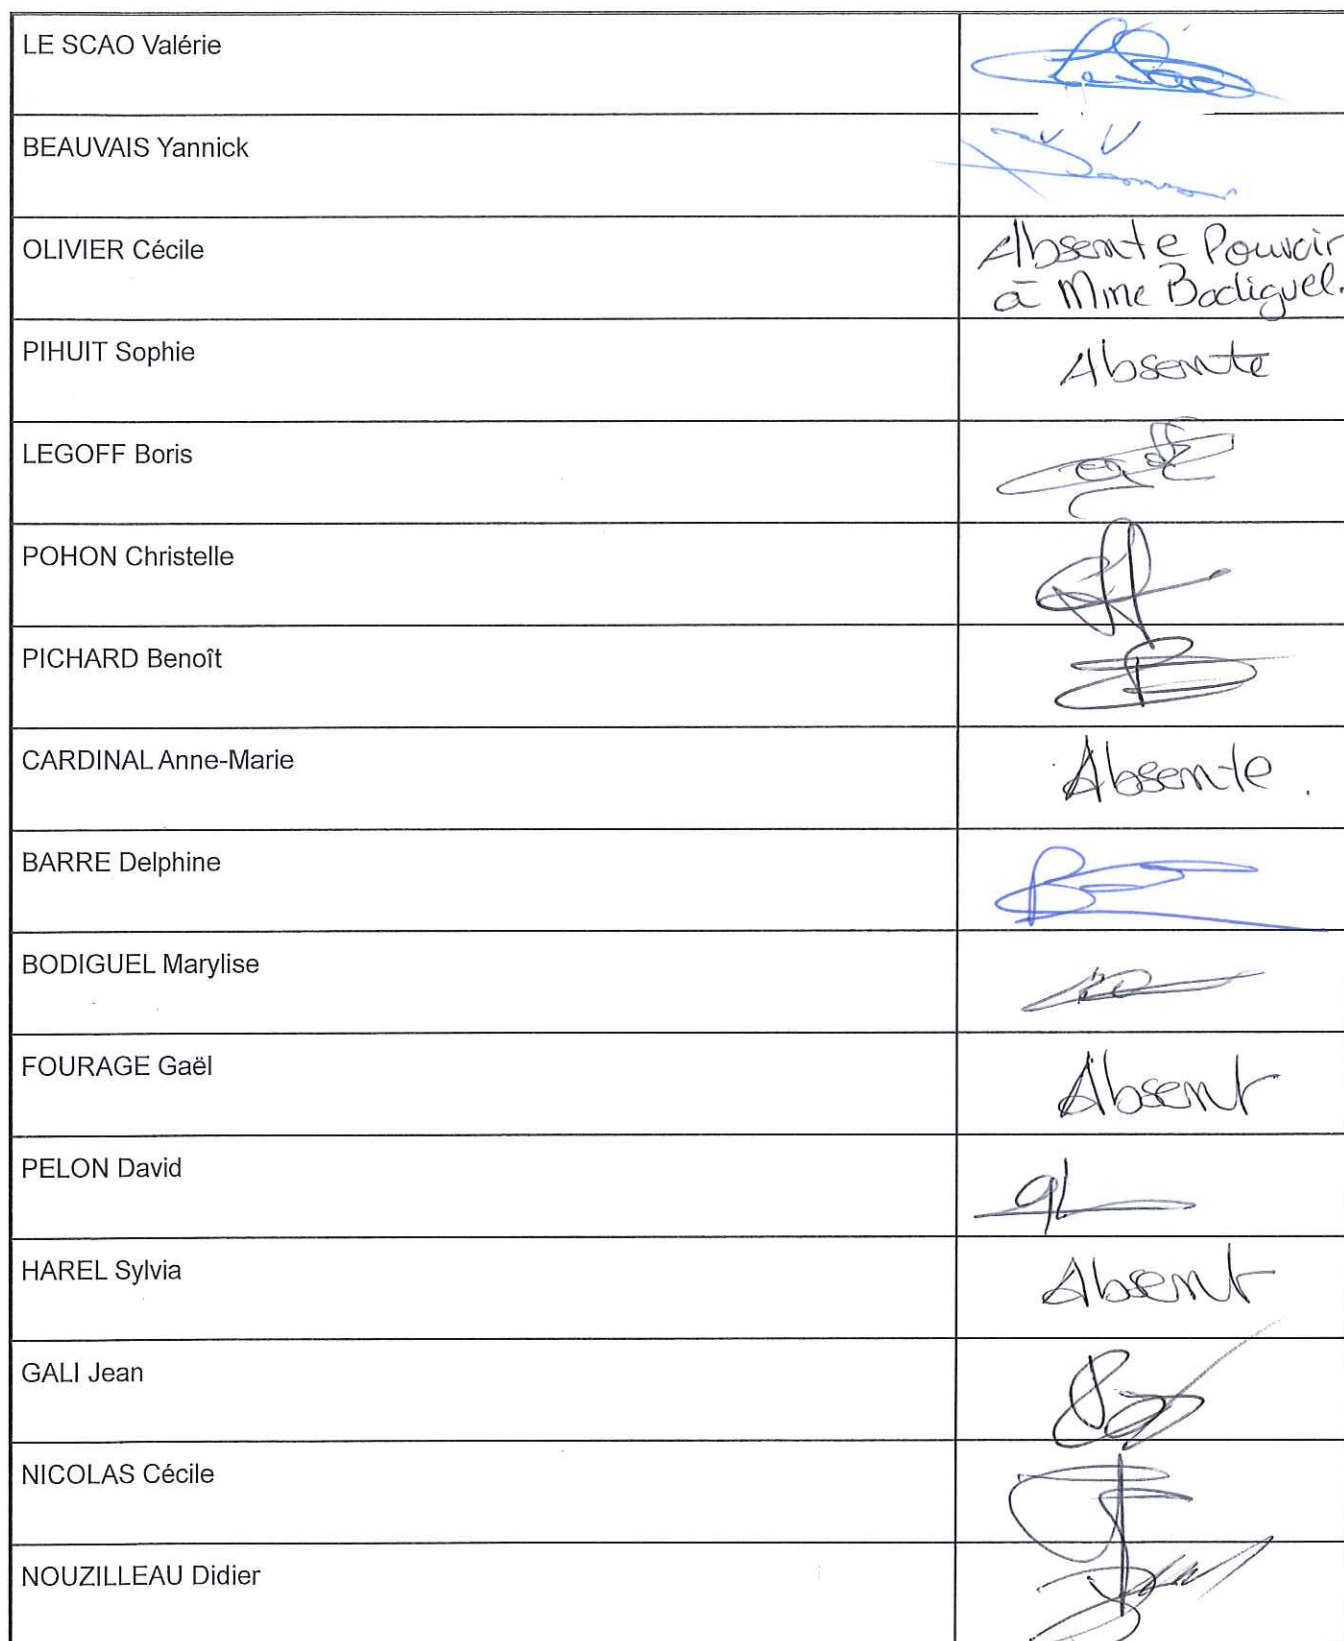 LE SCAO Valérie
BEAUVAIS Yannick
OLIVIER Cécile
Absente Pouvoir
à Mme Bodiguel.
PIHUIT Sophie
Absente
LEGOFF Boris
POHON Christelle
PICHARD Benoît
CARDINAL Anne-Marie
Absente.
BARRE Delphine
BODIGUEL Marylise
FOURAGE Gaël
Absent
PELON David
HAREL Sylvia
Absent
GALI Jean
NICOLAS Cécile
NOUZILLEAU Didier